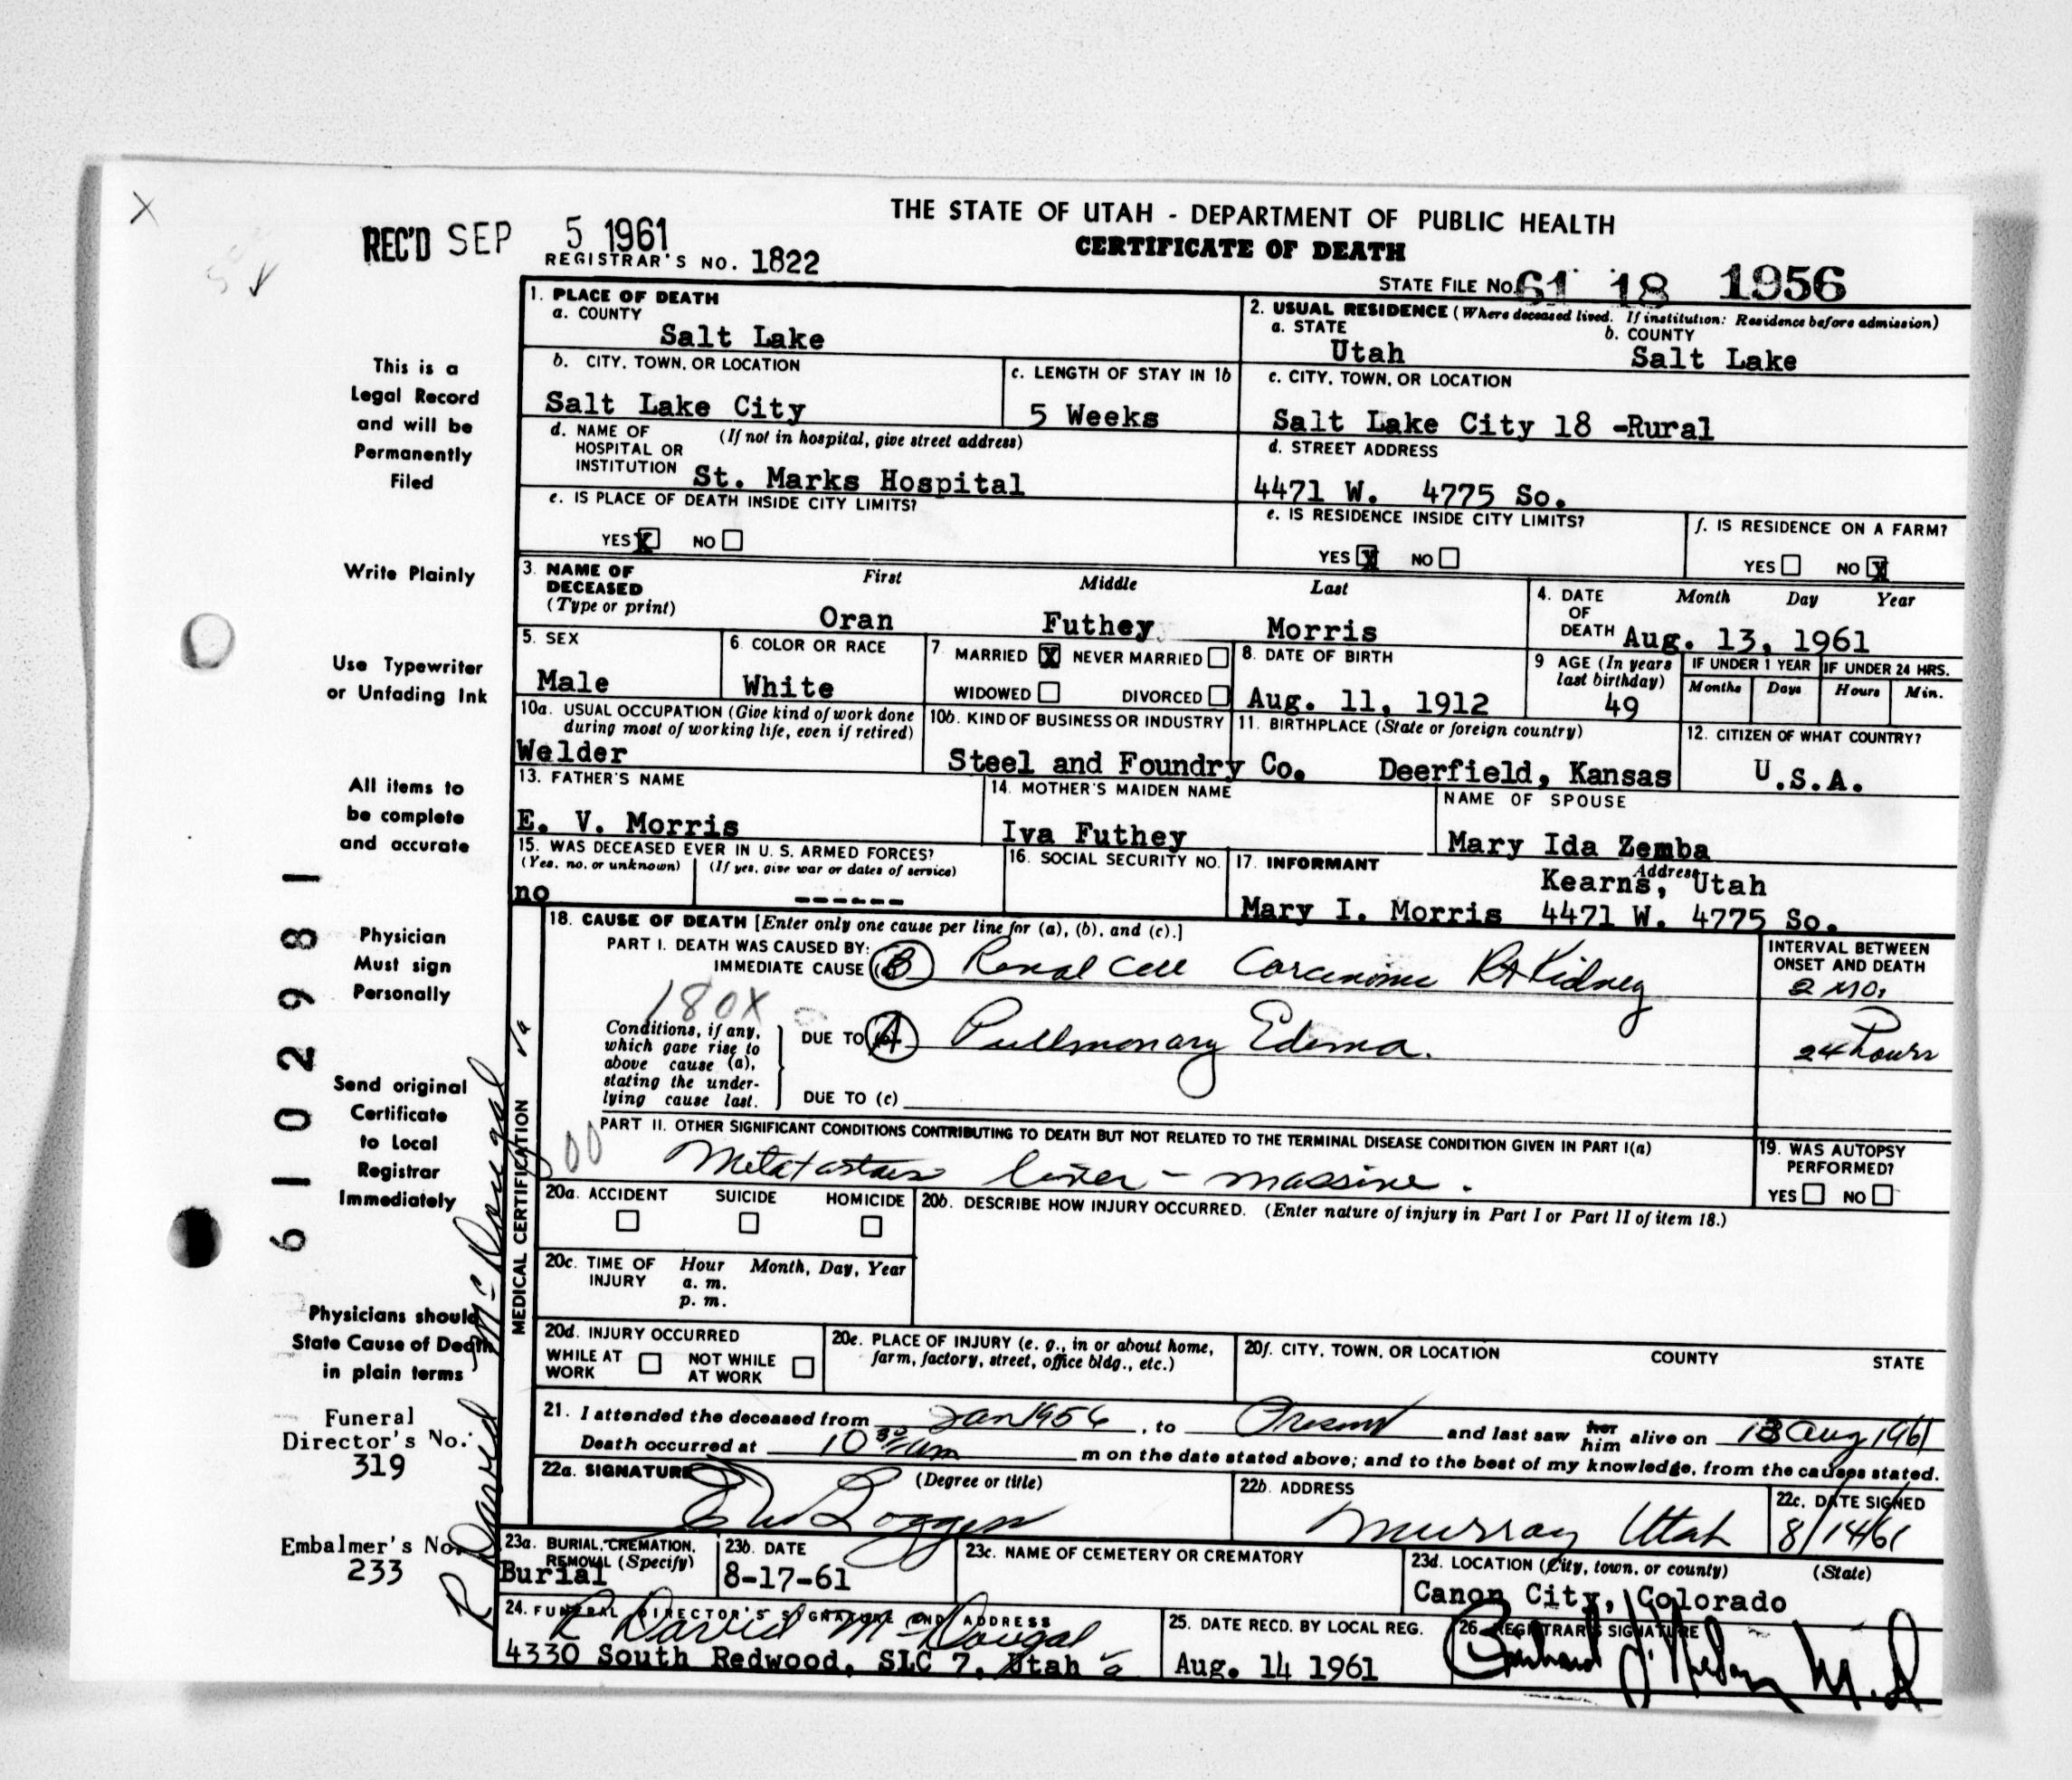 THE STATE OF UTAH - DEPARTMENT OF PUBLIC HEALTH
CERTIFICATE OF DEATH
REC'D SEP 5 1961
REGISTRAR'S NO. 1822
STATE FILE NO. 61 18 1956
1. PLACE OF DEATH
a. COUNTY
Salt Lake
2. USUAL RESIDENCE (Where deceased lived. If institution: Residence before admission)
a. STATE
Utah
b. COUNTY
Salt Lake
b. CITY, TOWN, OR LOCATION
Salt Lake City
c. LENGTH OF STAY IN 1b
5 Weeks
c. CITY, TOWN, OR LOCATION
Salt Lake City 18 -Rural
d. NAME OF HOSPITAL OR INSTITUTION
(If not in hospital, give street address)
St. Marks Hospital
d. STREET ADDRESS
4471 W. 4775 So.
e. IS PLACE OF DEATH INSIDE CITY LIMITS?
YES X NO
e. IS RESIDENCE INSIDE CITY LIMITS?
YES X NO
f. IS RESIDENCE ON A FARM?
YES NO X
3. NAME OF DECEASED (Type or print)
First Middle Last
Oran Futhey Morris
4. DATE OF DEATH
Month Day Year
Aug. 13, 1961
5. SEX
Male
6. COLOR OR RACE
White
7. MARRIED X NEVER MARRIED
WIDOWED DIVORCED
8. DATE OF BIRTH
Aug. 11, 1912
9 AGE (In years last birthday)
49
IF UNDER 1 YEAR
Months Days
IF UNDER 24 HRS.
Hours Min.
10a. USUAL OCCUPATION (Give kind of work done during most of working life, even if retired)
Welder
10b. KIND OF BUSINESS OR INDUSTRY
Steel and Foundry Co.
11. BIRTHPLACE (State or foreign country)
Deerfield, Kansas
12. CITIZEN OF WHAT COUNTRY?
U.S.A.
13. FATHER'S NAME
E. V. Morris
14. MOTHER'S MAIDEN NAME
Iva Futhey
NAME OF SPOUSE
Mary Ida Zemba
15. WAS DECEASED EVER IN U. S. ARMED FORCES?
(Yes, no, or unknown) (If yes, give war or dates of service)
no ------
16. SOCIAL SECURITY NO.
17. INFORMANT
Address
Kearns, Utah
Mary I. Morris 4471 W. 4775 So.
MEDICAL CERTIFICATION
18. CAUSE OF DEATH [Enter only one cause per line for (a), (b), and (c).]
PART I. DEATH WAS CAUSED BY:
IMMEDIATE CAUSE (B) Renal Cell Carcinoma Rt Kidney
INTERVAL BETWEEN ONSET AND DEATH
2 mo,
180X
Conditions, if any, which gave rise to above cause (a), stating the underlying cause last.
DUE TO (A) Pullmonary Edema.
24 hours
DUE TO (c)
PART II. OTHER SIGNIFICANT CONDITIONS CONTRIBUTING TO DEATH BUT NOT RELATED TO THE TERMINAL DISEASE CONDITION GIVEN IN PART I(a)
00
liver - massive.
19. WAS AUTOPSY PERFORMED?
YES NO
20a. ACCIDENT SUICIDE HOMICIDE
20b. DESCRIBE HOW INJURY OCCURRED. (Enter nature of injury in Part I or Part II of item 18.)
20c. TIME OF INJURY
Hour Month, Day, Year
a. m.
p. m.
20d. INJURY OCCURRED
WHILE AT WORK NOT WHILE AT WORK
20e. PLACE OF INJURY (e. g., in or about home, farm, factory, street, office bldg., etc.)
20f. CITY, TOWN, OR LOCATION COUNTY STATE
21. I attended the deceased from Jan 1956, to Present and last saw her him alive on 13 Aug 1961
Death occurred at 10 30 am m on the date stated above; and to the best of my knowledge, from the causes stated.
22a. SIGNATURE (Degree or title)
22b. ADDRESS
Murray Utah
22c. DATE SIGNED
8/14/61
23a. BURIAL, CREMATION, REMOVAL (Specify)
Burial
23b. DATE
8-17-61
23c. NAME OF CEMETERY OR CREMATORY
23d. LOCATION (City, town, or county) (State)
Canon City, Colorado
24. FUNERAL DIRECTOR'S SIGNATURE AND ADDRESS
R David McDougal
4330 South Redwood, SLC 7, Utah
25. DATE RECD. BY LOCAL REG.
Aug. 14 1961
26. REGISTRAR'S SIGNATURE
M.D
This is a
Legal Record
and will be
Permanently
Filed
Write Plainly
Use Typewriter
or Unfading Ink
All items to
be complete
and accurate
Physician
Must sign
Personally
Send original
Certificate
to Local
Registrar
Immediately
Physicians should
State Cause of Death
in plain terms
Funeral
Director's No.
319
Embalmer's No.
233
6102981
R David McDougal